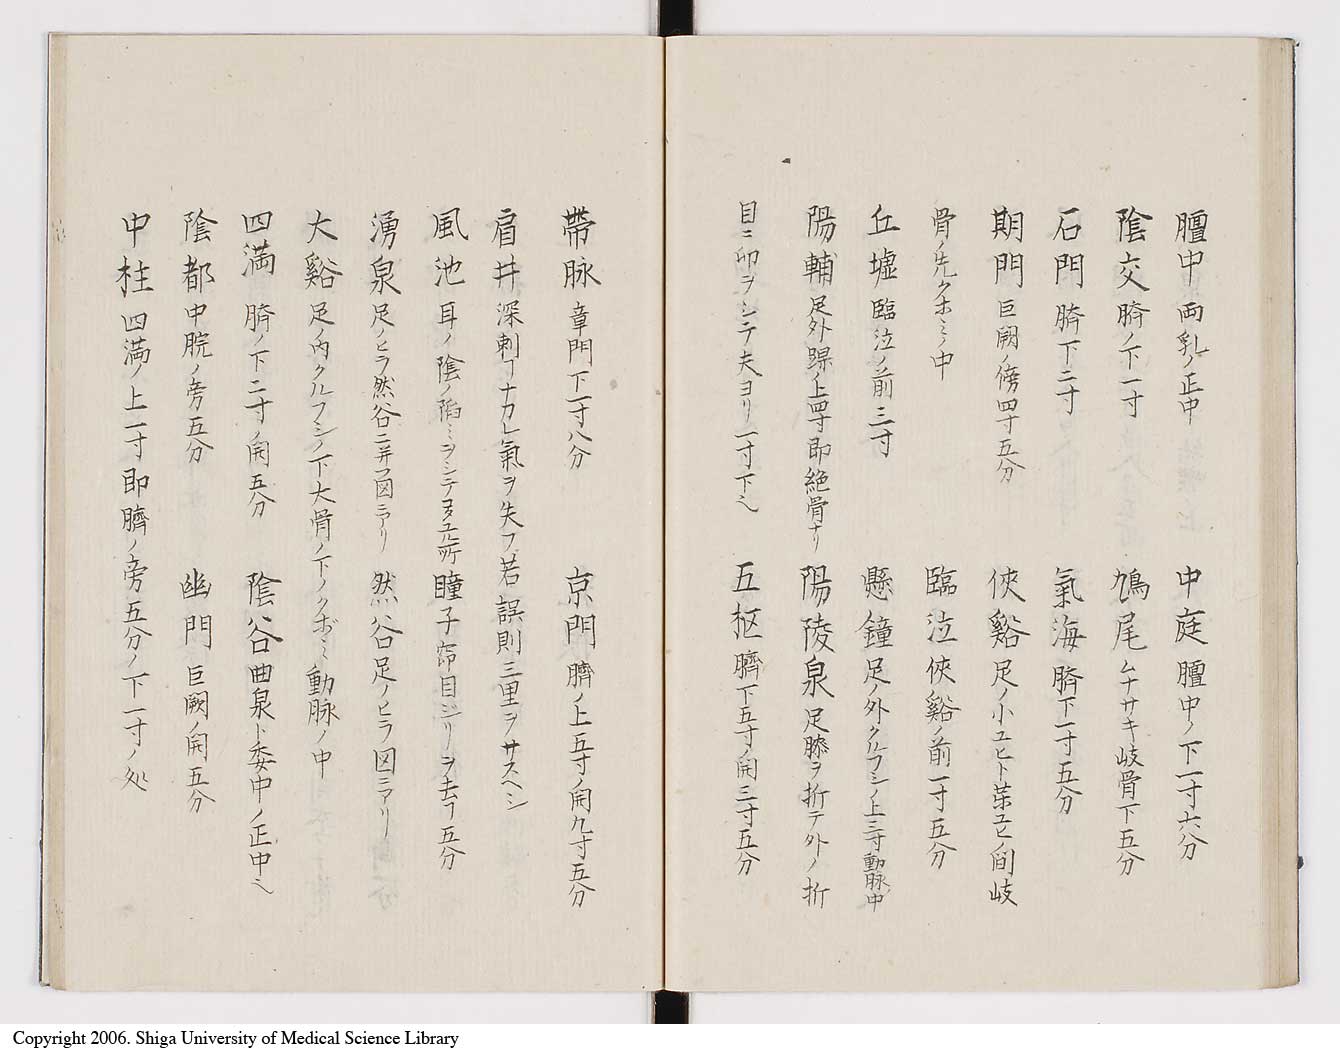 膻中 両乳ノ正中 中庭 膻中ノ下一寸六分
陰交 臍ノ下一寸 鳩尾 ムナサキ岐骨下五分
石門 臍下二寸 氣海 臍下一寸五分
期門 巨厥ノ傍四寸五分 侠谿 足ノ小ユヒト茅ユヒノ間岐
骨ノ先クホミノ中 臨泣 侠谿ノ前一寸五分
丘墟 臨泣ノ前三寸 懸鐘 足ノ外クルフシノ上三寸動脉中
陽輔 足外踝ノ上四寸即絶骨ナリ 陽陵泉 足膝ヲ折テ外ノ折
目ニ卯ヲシテ夫ヨリ一寸下ヘ 五枢 臍下五寸ノ開三寸五分
帶脉 章門下一寸八分 京門 臍ノ上五寸ノ開九寸五分
肩井 深刺ヿナカレ氣ヲ失フ若誤則三里ヲサスヘシ
風池 耳ノ陰ノ陷ミヲシテコタユル所 瞳子窌 目ジリヲ去ヿ五分
湧泉 足ノヒラ然谷ニ并フ図ニアリ 然谷 足ノヒラ図ニアリ
大谿 足ノ内クルフシノ下大骨ノ下ノクボミ動脉ノ中
四満 臍ノ下二寸ノ開五分 陰谷 曲泉ト委中ノ正中ヘ
陰都 中脘ノ旁五分 幽門 巨厥ノ開五分
中柱 四満ノ上一寸即臍ノ旁五分ノ下一寸ノ処
Copyright 2006. Shiga University of Medical Science Library